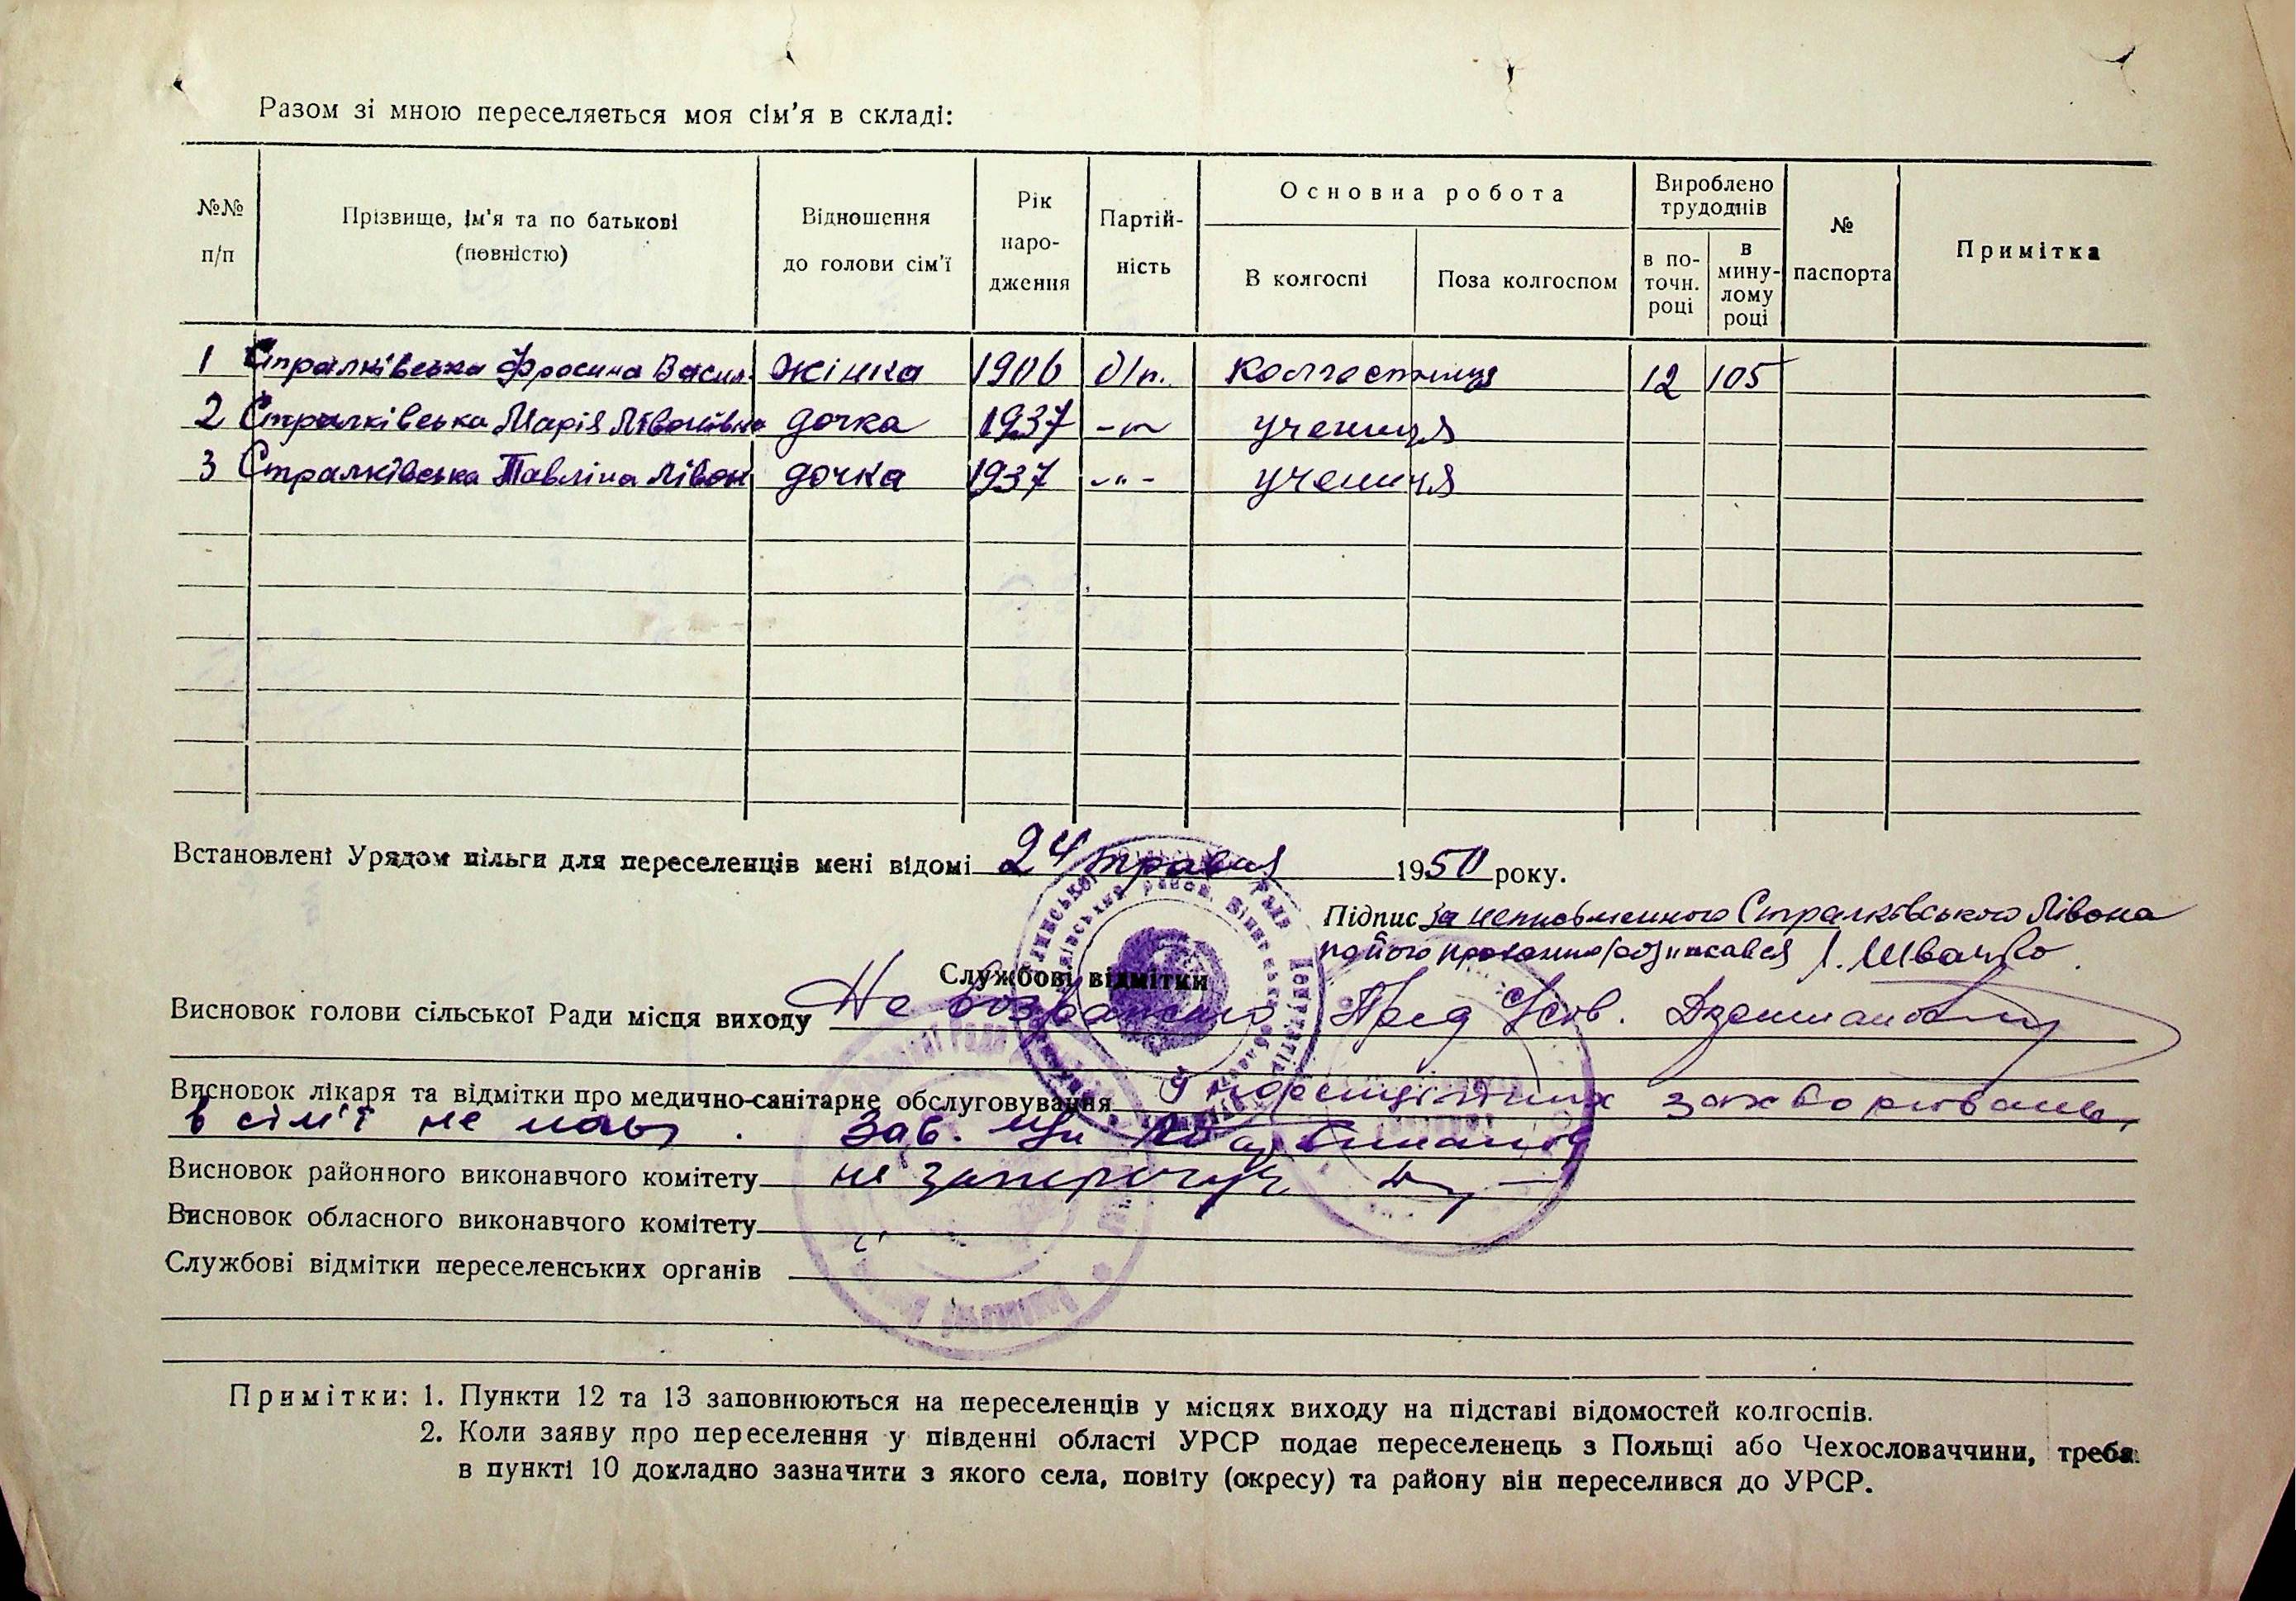 Разом зі мною переселяється моя сім'я в складі:
№№ п/п Прізвище, ім'я та по батькові (повністю) Відношення до голови сім'ї Рік народження Партійність Основна робота Вироблено трудоднів № паспорта Примітка
В колгоспі Поза колгоспом в поточн. році в минулому році
1 Стралківська Фросина Васил. жінка 1906 б/п. колгоспниця 12 105
2 Стралківська Марія Лівонівна дочка 1937 -"- учениця
3 Стралківська Павліна Лівон дочка 1937 -"- учениця
Встановлені Урядом пільги для переселенців мені відомі 24 травня 1950 року.
Підпис за неписьменного Стралківського Лівона
по його проханню розписався Швачко
Службові відмітки
Висновок голови сільської Ради місця виходу Не возражаю
Висновок лікаря та відмітки про медично-санітарне обслуговування Інфекційних захворювань
в сім'ї не має. Зав.
Висновок районного виконавчого комітету не заперечує
Висновок обласного виконавчого комітету
Службові відмітки переселенських органів
Примітки: 1. Пункти 12 та 13 заповнюються на переселенців у місцях виходу на підставі відомостей колгоспів.
2. Коли заяву про переселення у південні області УРСР подає переселенець з Польщі або Чехословаччини, треба
в пункті 10 докладно зазначити з якого села, повіту (окресу) та району він переселився до УРСР.